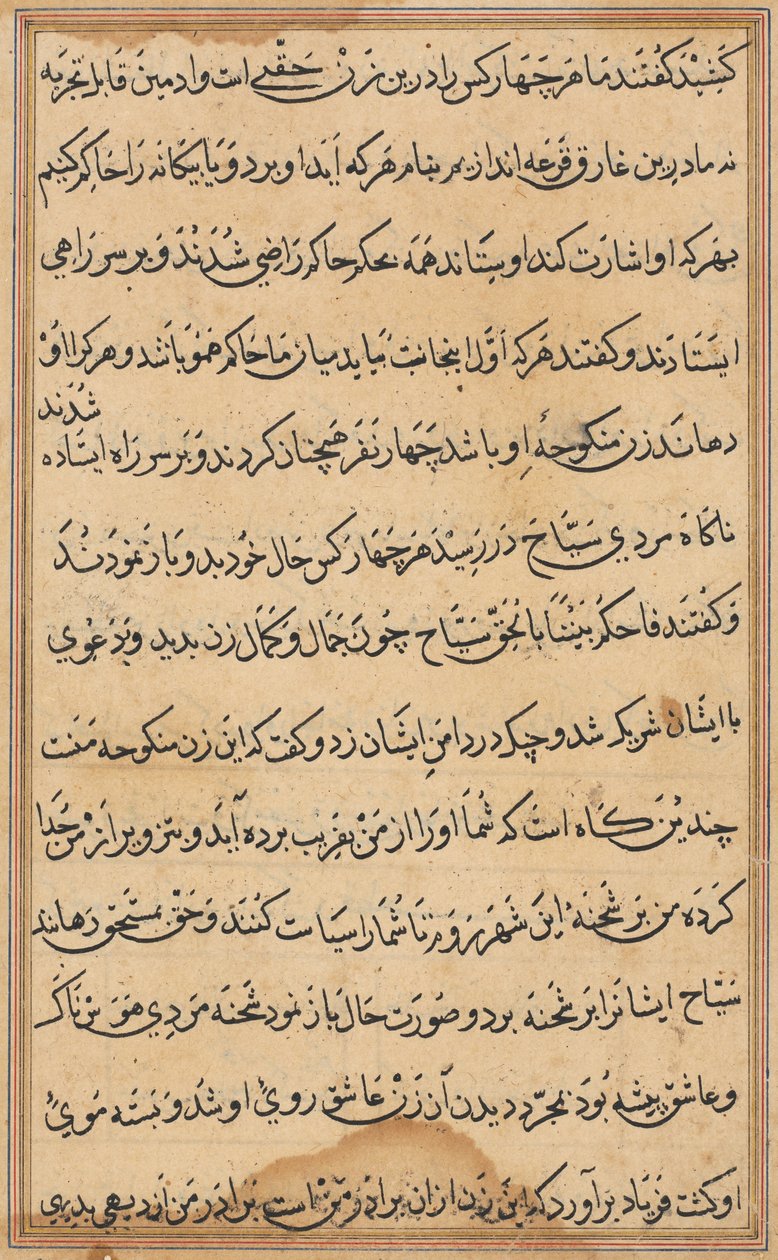 کشید گفتند ما هر چهار کس را درین زن حقّی است و ادمین قابل تجزیه
نه مادرین غارق قرعه اندازیم بنام هر که آید او برد و یا بیکانه را حاکم کنیم
بهر که او اشارت کند او بستاند همه بحکم حاکم راضی شدند و بر سر راهی
ایستادند و کفتند هر که اوّل اینجانب بیاید میان ما حاکم همو باشد و هر کرا اوْ
دهاند زن منکوحهٔ او باشد چهار نفر همچنان کردند و بر سر راه ایستاده شدند
ناکاه مردی سیّاح در رسید هر چهار کس حال خود بدو باز نمودند
و کفتند فاحکم بیننا بالحقّ سیّاح چون جمال و کمال زن بدید و بدعوی
با ایشان شریک شد و چنک در دامن ایشان زد و کفت که این زن منکوحه منست
چندین کاه است که شما او را از من بفریب برده آید و بتزویر از من جدا
کرده من بر شحنهٔ این شهر روم تا شما را سیاست کنند و حق بمستحق رهانند
سیّاح ایشانرا بر شحنه برد و صورت حال باز نمود شحنه مردی هوسناک
و عاشق پیشه بود بمجرّد دیدن آن زن عاشق روئ او شد و بسته موئ
او کشت فریاد برآورد که این زن از ان برادر من است برادر من از دیهی بدیهی